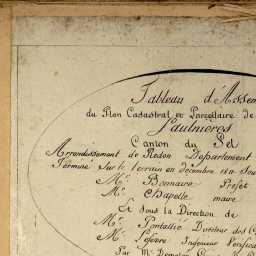 Tableau d'Assem
du Plan Cadastral et Parcellaire de
Saulnieres
Canton du Sel
Arrondissement de Redon Département
Terminé sur le terrain en décembre
Mr. Bonnaire Préfet
Mr. Chapelle maire
Et Sous la Direction de
Mr. Pontallié Directeur des C
Mr. Lefevre Ingénieur Vérifica
Par Mr.